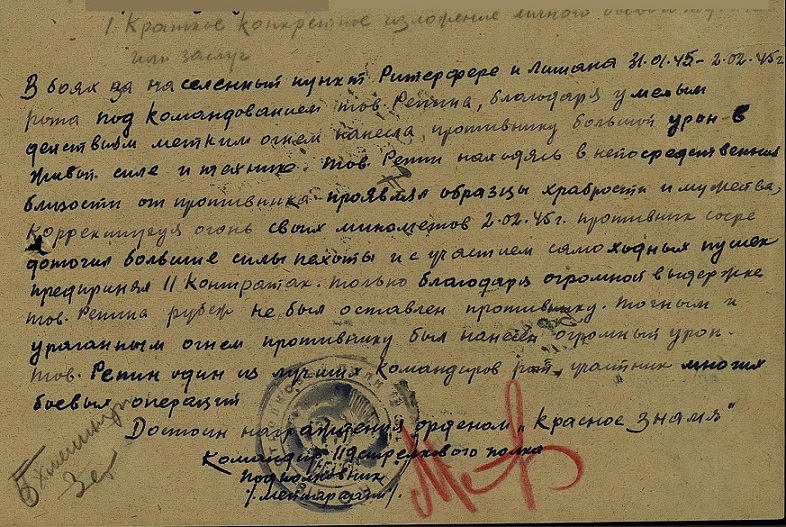 1. Краткое конкретное изложение личного боевого
или заслуг
В боях за населенный пункт Ритерфере и Лишана 31.01.45 – 2.02.45г
рота под командованием тов. Репина, благодаря умелым
действиям метким огнем нанесла противнику большой урон в
живой силе и технике. Тов. Репин находясь в непосредственной
близости от противника проявлял образцы храбрости и мужества,
корректируя огонь своих минометов 2.02.45г. противник сосре
доточил большие силы пехоты и с участием самоходных пушек
предпринял 11 контратак. Только благодаря огромной выдержке
тов. Репина рубеж не был оставлен противнику. Точным и
ураганным огнем противнику был нанесен огромный урон.
Тов. Репин один из лучших командиров рот, участник многих
боевых операций
Достоин награждения орденом „Красное Знамя"
Командир стрелкового полка
подполковник